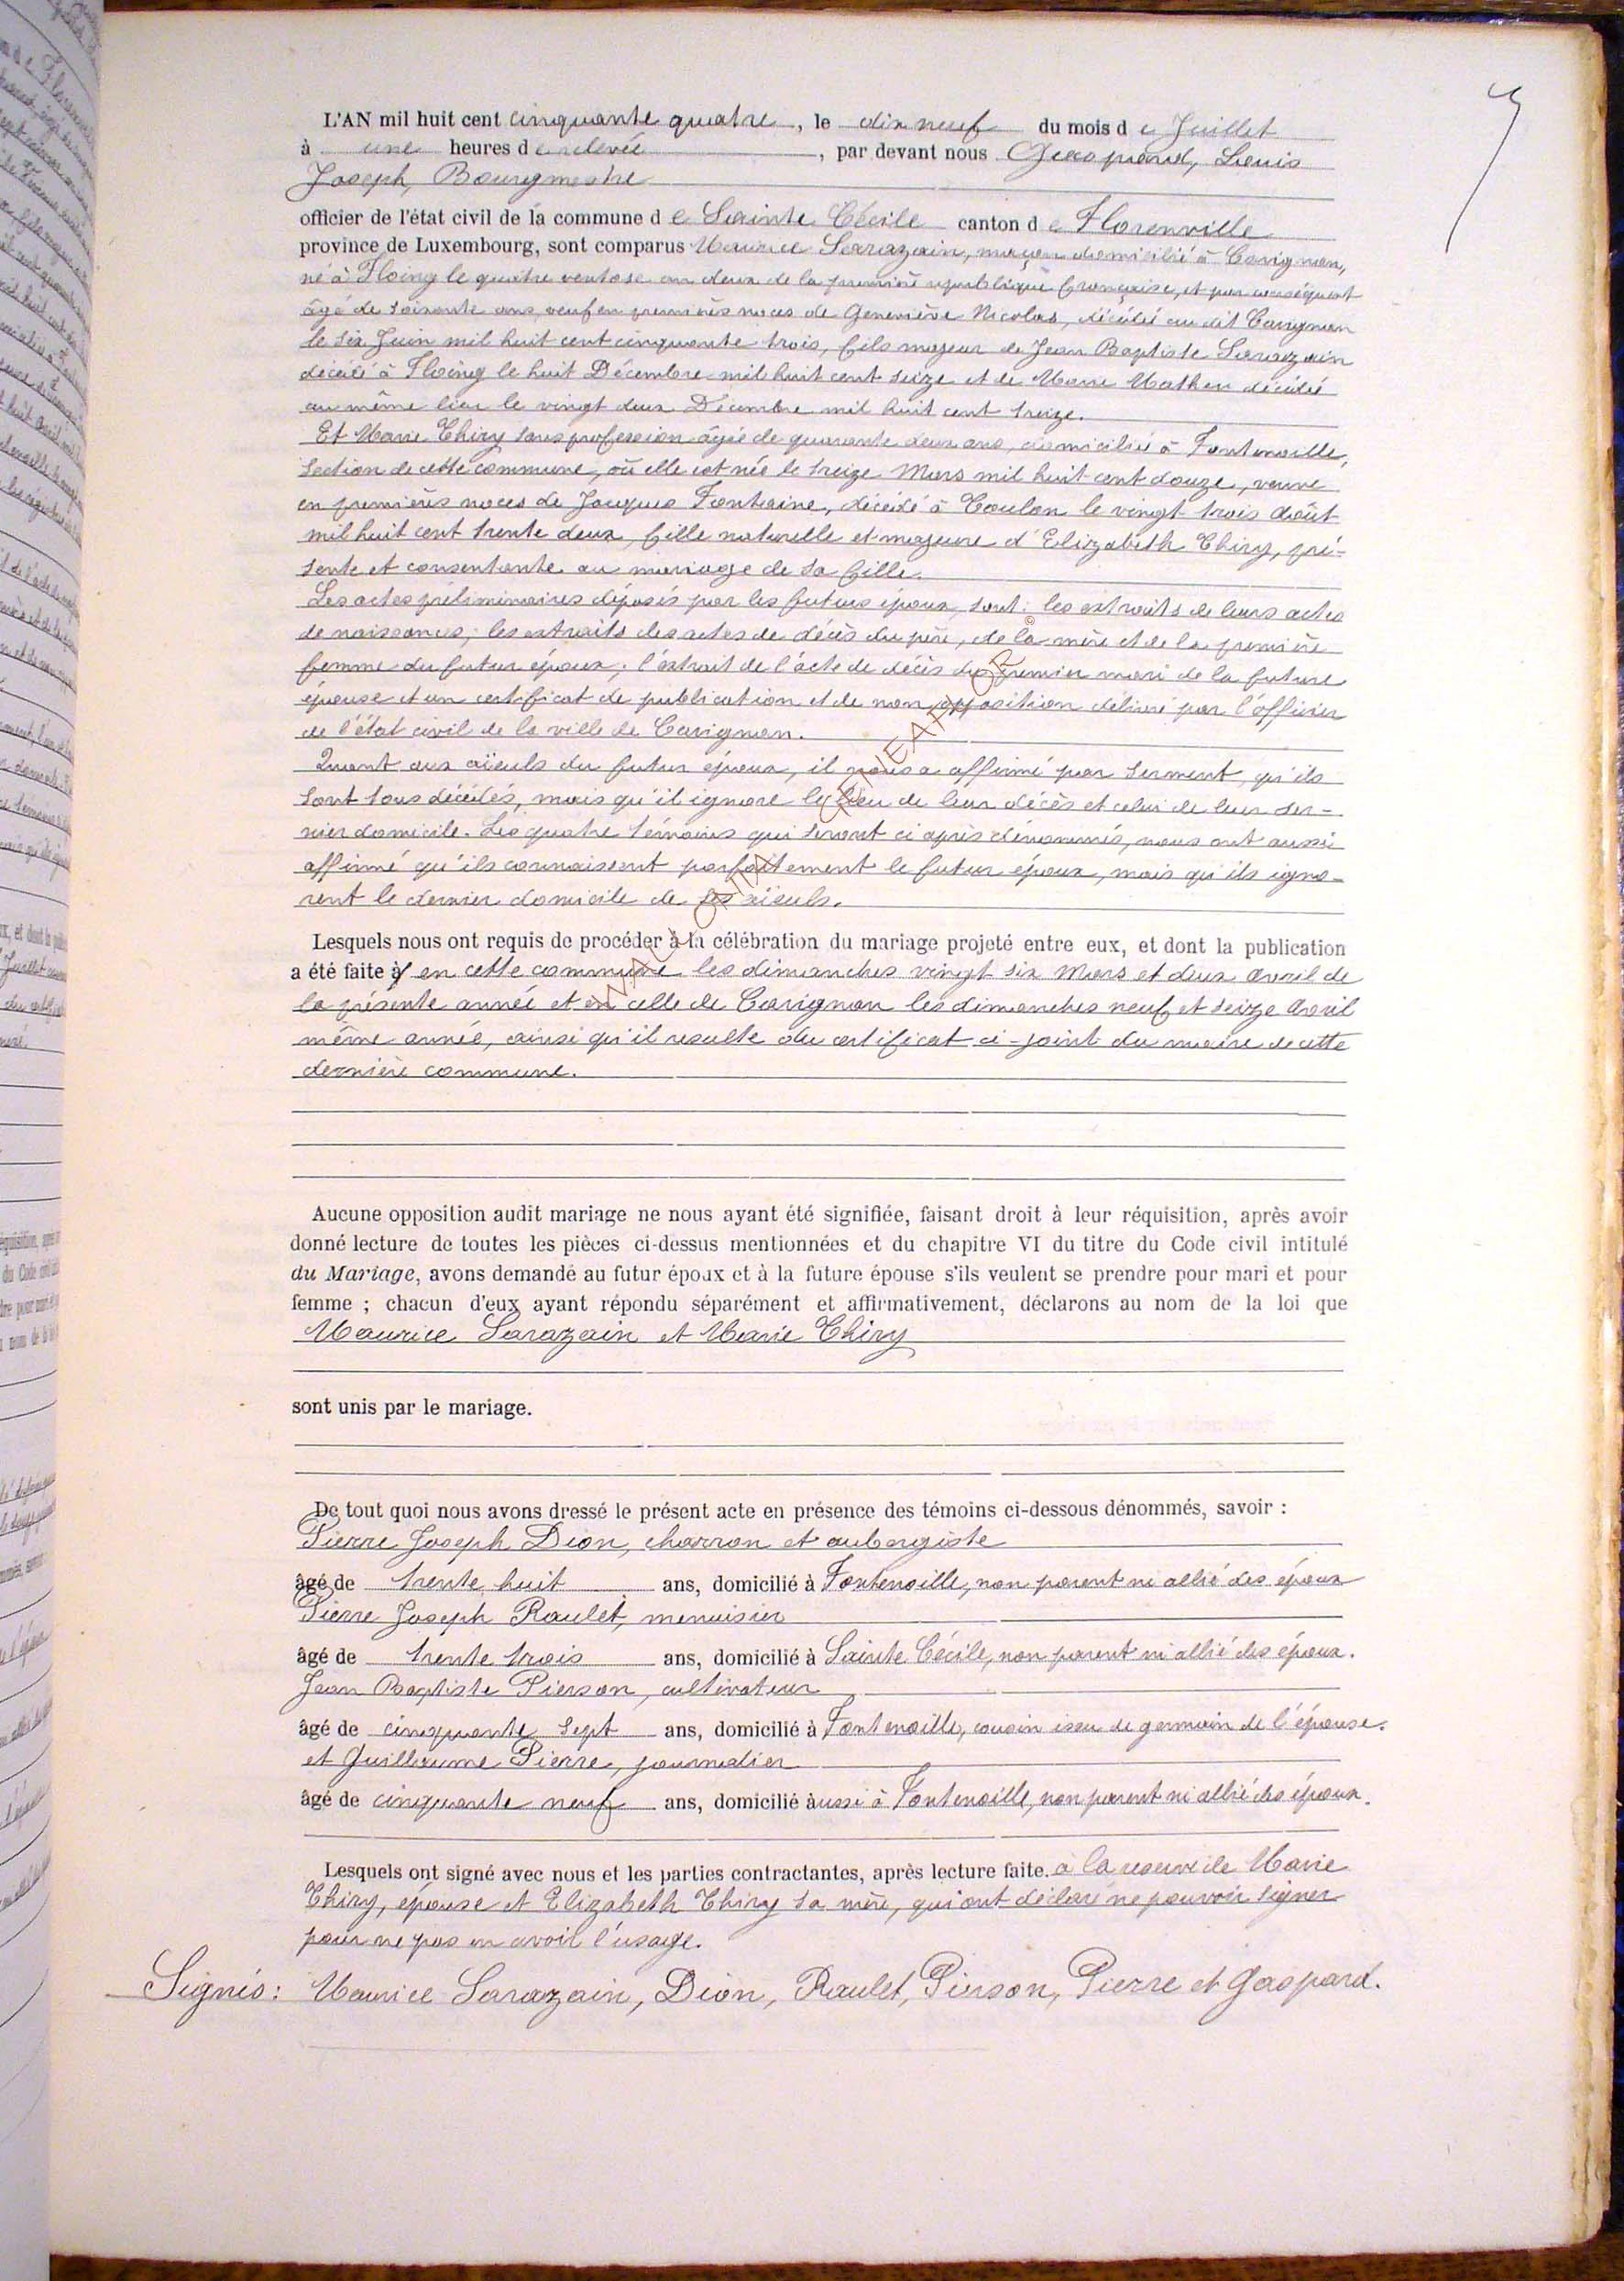 L'AN mil huit cent cinquante quatre, le dix neuf du mois de Juillet
à une heures de relevée, par devant nous Gaspard, Louis
Joseph, Bourgmestre
officier de l'état civil de la commune de Sainte Cécile canton de Florenville
province de Luxembourg, sont comparus Maurice Sarazain, maçon domicilié à Carignan,
né à Floing le quatre ventose an deux de la première république française, et par conséquent
âgé de soixante ans, veuf en premières noces de Geneviève Nicolas, décédée au dit Carignan
le six Juin mil huit cent cinquante trois, fils majeur de Jean Baptiste Sarazain
décédé à Floing le huit Décembre mil huit cent seize et de Marie Mathen décédée
au même lieu le vingt deux Décembre mil huit cent treize.
Et Marie Thiry sans profession âgée de quarante deux ans, domiciliée à Fontenoille,
section de cette commune, où elle est née le treize Mars mil huit cent douze, veuve
en premières noces de Jacques Fontaine, décédé à Toulon le vingt trois Août
mil huit cent trente deux, fille naturelle et majeure d'Elizabeth Thiry, pré-
sente et consentante au mariage de sa fille.
Les actes préliminaires déposés par les futurs époux sont: les extraits de leurs actes
de naissances; les extraits des actes de décès du père, de la mère et de la première
femme du futur époux; l'extrait de l'acte de décès du premier mari de la future
épouse et un certificat de publication et de non opposition délivré par l'officier
de l'état civil de la ville de Carignan.
Quant aux aïeuls du futur époux, il nous a affirmé par serment, qu'ils
sont tous décédés, mais qu'il ignore le lieu de leur décès et celui de leur der-
nier domicile. Les quatre témoins qui seront ci après dénommés, nous ont aussi
affirmé qu'ils connaissent parfaitement le futur époux, mais qu'ils igno-
rent le dernier domicile de ses aïeuls.
Lesquels nous ont requis de procéder à la célébration du mariage projeté entre eux, et dont la publication
a été faite à en cette commune les dimanches vingt six Mars et deux Avril de
la présente année et en celle de Carignan les dimanches neuf et seize Avril
même année, ainsi qu'il resulte du certificat ci-joint du maire de cette
dernière commune.
Aucune opposition audit mariage ne nous ayant été signifiée, faisant droit à leur réquisition, après avoir
donné lecture de toutes les pièces ci-dessus mentionnées et du chapitre VI du titre du Code civil intitulé
du Mariage, avons demandé au futur époux et à la future épouse s'ils veulent se prendre pour mari et pour
femme ; chacun d'eux ayant répondu séparément et affirmativement, déclarons au nom de la loi que
Maurice Sarazain et Marie Thiry
sont unis par le mariage.
De tout quoi nous avons dressé le présent acte en présence des témoins ci-dessous dénommés, savoir :
Pierre Joseph Dion, charron et aubergiste
âgé de trente huit ans, domicilié à Fontenoille, non parent ni allié des époux
Pierre Joseph Raulet, menuisier
âgé de trente trois ans, domicilié à Sainte Cécile, non parent ni allié des époux.
Jean Baptiste Pierson, cultivateur
âgé de cinquante sept ans, domicilié à Fontenoille, cousin issu de germain de l'épouse.
et Guillaume Pierre, journalier
âgé de cinquante neuf ans, domicilié aussi à Fontenoille, non parent ni allié des époux.
Lesquels ont signé avec nous et les parties contractantes, après lecture faite. à la reserve de Marie
Thiry, épouse et Elizabeth Thiry sa mère, qui ont déclaré ne pouvoir signer
pour ne pas en avoir l'usage.
Signés: Maurice Sarazain, Dion, Raulet, Pierson, Pierre et Gaspard.